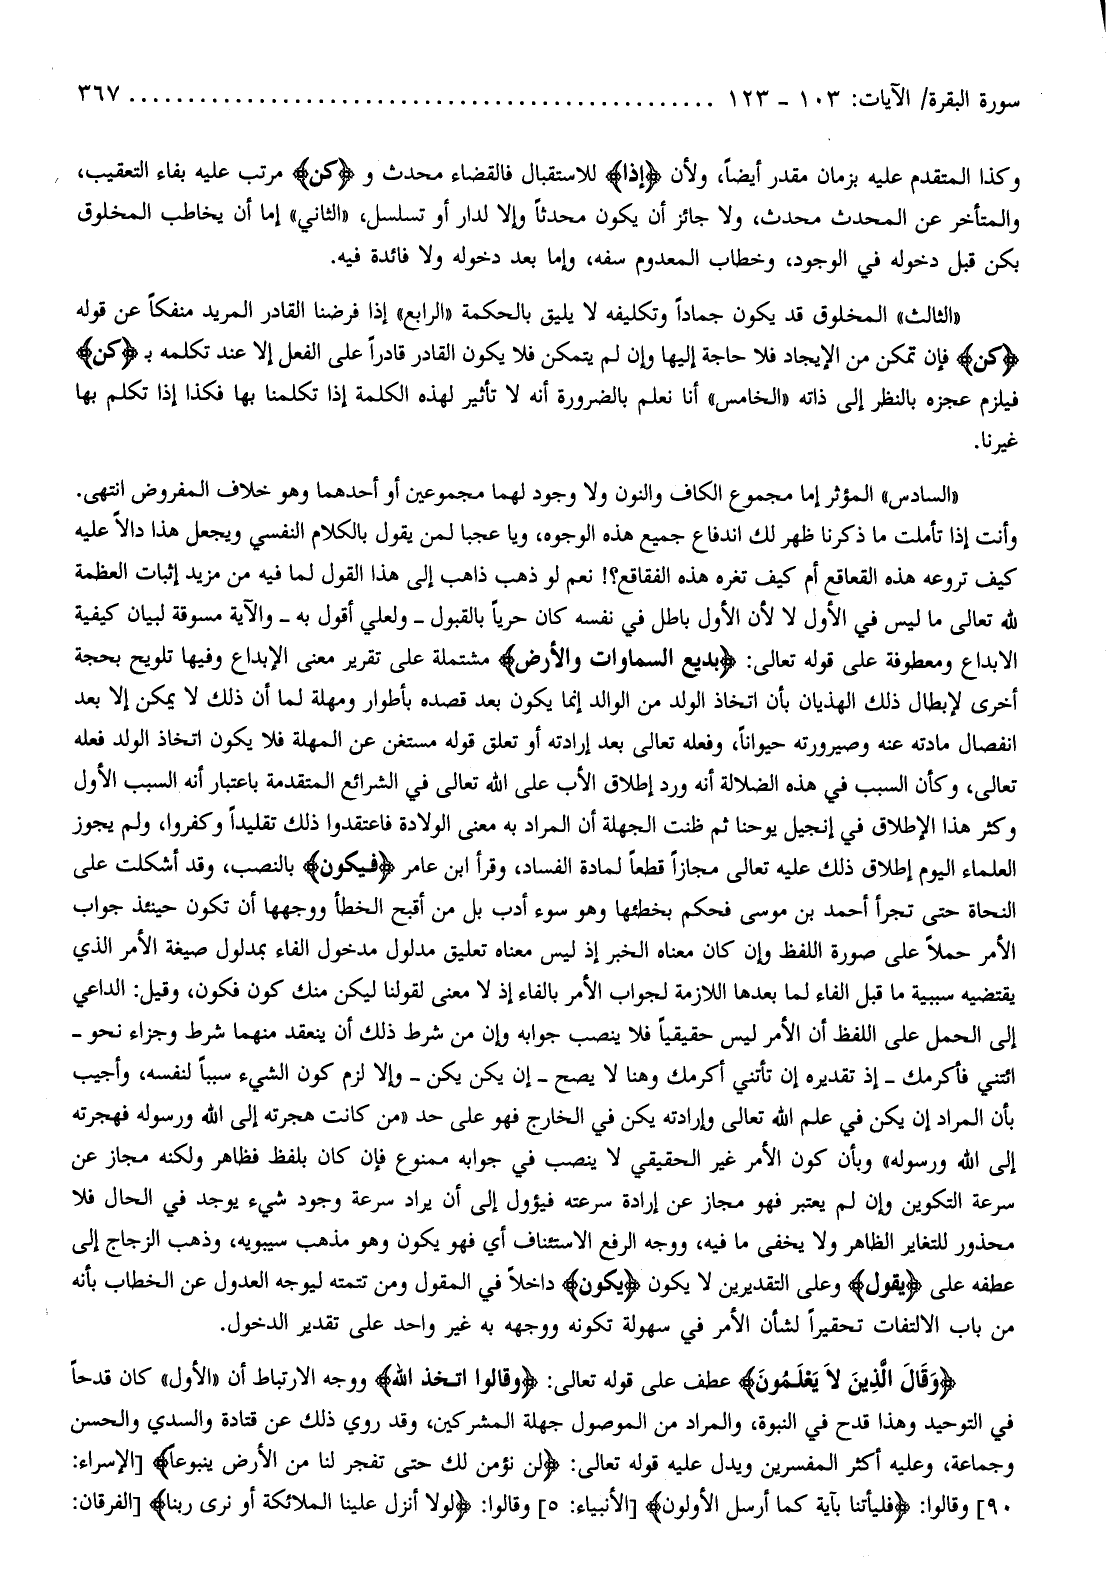 سورة البقرة/ الآيات: ١٠٣ - ١٢٣ ................................................ ٣٦٧
وكذا المتقدم عليه بزمان مقدر أيضاً، ولأن ﴿إذا﴾ للاستقبال فالقضاء محدث و ﴿كن﴾ مرتب عليه بفاء التعقيب،
والمتأخر عن المحدث محدث، ولا جائز أن يكون محدثاً وإلا لدار أو تسلسل، «الثاني» إما أن يخاطب المخلوق
بكن قبل دخوله في الوجود، وخطاب المعدوم سفه، وإما بعد دخوله ولا فائدة فيه.
«الثالث» المخلوق قد يكون جماداً وتكليفه لا يليق بالحكمة «الرابع» إذا فرضنا القادر المريد منفكاً عن قوله
﴿كن﴾ فإن تمكن من الإيجاد فلا حاجة إليها وإن لم يتمكن فلا يكون القادر قادراً على الفعل إلا عند تكلمه بـ ﴿كن﴾
فيلزم عجزه بالنظر إلى ذاته «الخامس» أنا نعلم بالضرورة أنه لا تأثير لهذه الكلمة إذا تكلمنا بها فكذا إذا تكلم بها
غيرنا.
«السادس» المؤثر إما مجموع الكاف والنون ولا وجود لهما مجموعين أو أحدهما وهو خلاف المفروض انتهى.
وأنت إذا تأملت ما ذكرنا ظهر لك اندفاع جميع هذه الوجوه، ويا عجبا لمن يقول بالكلام النفسي ويجعل هذا دالاً عليه
كيف تروعه هذه القعاقع أم كيف تغره هذه الفقاقع؟! نعم لو ذهب ذاهب إلى هذا القول لما فيه من مزيد إثبات العظمة
لله تعالى ما ليس في الأول لا لأن الأول باطل في نفسه كان حرياً بالقبول ـ ولعلي أقول به ـ والآية مسوقة لبيان كيفية
الابداع ومعطوفة على قوله تعالى: ﴿بديع السماوات والأرض﴾ مشتملة على تقرير معنى الإبداع وفيها تلويح بحجة
أخرى لإبطال ذلك الهذيان بأن اتخاذ الولد من الوالد إنما يكون بعد قصده بأطوار ومهلة لما أن ذلك لا يمكن إلا بعد
انفصال مادته عنه وصيرورته حيواناً، وفعله تعالى بعد إرادته أو تعلق قوله مستغن عن المهلة فلا يكون اتخاذ الولد فعله
تعالى، وكأن السبب في هذه الضلالة أنه ورد إطلاق الأب على الله تعالى في الشرائع المتقدمة باعتبار أنه السبب الأول
وكثر هذا الإطلاق في إنجيل يوحنا ثم ظنت الجهلة أن المراد به معنى الولادة فاعتقدوا ذلك تقليداً وكفروا، ولم يجوز
العلماء اليوم إطلاق ذلك عليه تعالى مجازاً قطعاً لمادة الفساد، وقرأ ابن عامر ﴿فيكون﴾ بالنصب، وقد أشكلت على
النحاة حتى تجرأ أحمد بن موسى فحكم بخطئها وهو سوء أدب بل من أقبح الخطأ ووجهها أن تكون حينئذ جواب
الأمر حملاً على صورة اللفظ وإن كان معناه الخبر إذ ليس معناه تعليق مدلول مدخول الفاء بمدلول صيغة الأمر الذي
يقتضيه سببية ما قبل الفاء لما بعدها اللازمة لجواب الأمر بالفاء إذ لا معنى لقولنا ليكن منك كون فكون، وقيل: الداعي
إلى الحمل على اللفظ أن الأمر ليس حقيقياً فلا ينصب جوابه وإن من شرط ذلك أن ينعقد منهما شرط وجزاء نحو ـ
ائتني فأكرمك ـ إذ تقديره إن تأتني أكرمك وهنا لا يصح ـ إن يكن يكن ـ وإلا لزم كون الشيء سبباً لنفسه، وأجيب
بأن المراد إن يكن في علم الله تعالى وإرادته يكن في الخارج فهو على حد «من كانت هجرته إلى الله ورسوله فهجرته
إلى الله ورسوله» وبأن كون الأمر غير الحقيقي لا ينصب في جوابه ممنوع فإن كان بلفظ فظاهر ولكنه مجاز عن
سرعة التكوين وإن لم يعتبر فهو مجاز عن إرادة سرعته فيؤول إلى أن يراد سرعة وجود شيء يوجد في الحال فلا
محذور للتغاير الظاهر ولا يخفى ما فيه، ووجه الرفع الاستئناف أي فهو يكون وهو مذهب سيبويه، وذهب الزجاج إلى
عطفه على ﴿يقول﴾ وعلى التقديرين لا يكون ﴿يكون﴾ داخلاً في المقول ومن تتمته ليوجه العدول عن الخطاب بأنه
من باب الالتفات تحقيراً لشأن الأمر في سهولة تكونه ووجهه به غير واحد على تقدير الدخول.
﴿وَقَالَ الَّذِينَ لاَ يَعْلَمُونَ﴾ عطف على قوله تعالى: ﴿وقالوا اتخذ الله﴾ ووجه الارتباط أن «الأول» كان قدحاً
في التوحيد وهذا قدح في النبوة، والمراد من الموصول جهلة المشركين، وقد روي ذلك عن قتادة والسدي والحسن
وجماعة، وعليه أكثر المفسرين ويدل عليه قوله تعالى: ﴿لن نؤمن لك حتى تفجر لنا من الأرض ينبوعاً﴾ [الإسراء:
٩٠] وقالوا: ﴿فليأتنا بآية كما أرسل الأولون﴾ [الأنبياء: ٥] وقالوا: ﴿لولا أنزل علينا الملائكة أو نرى ربنا﴾ [الفرقان: